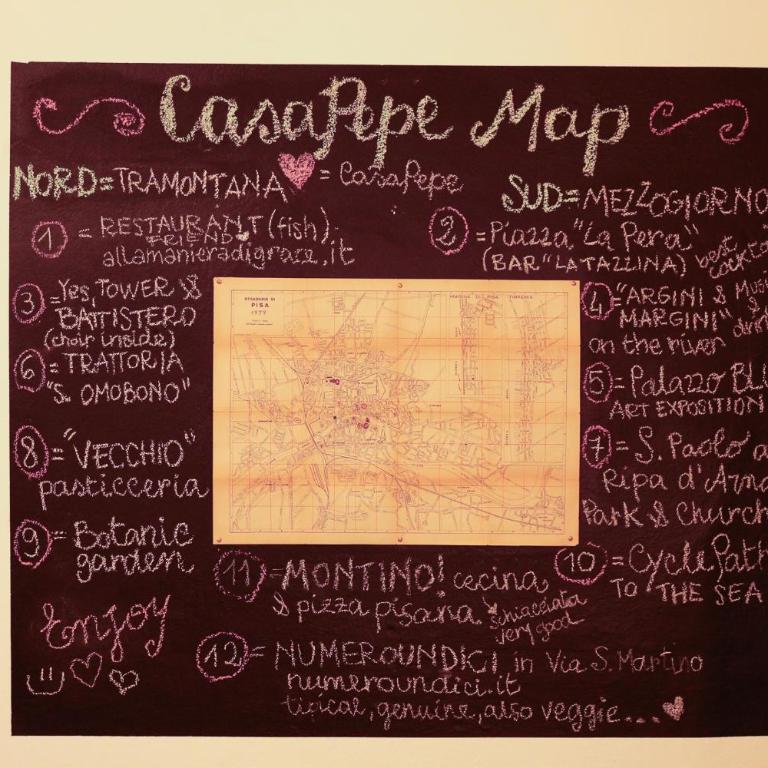 CasaPepe Map
NORD=TRAMONTANA
= CasaPepe
SUD=MEZZOGIORNO
1 = RESTAURANT (fish)
FRIEND
allamanieradigraze.it
2 = Piazza "La Pera"
(BAR "LA TAZZINA) best
3 = Yes, TOWER &
BATTISTERO
(choir inside)
4 = "ARGINI &
MARGINI"
on the river
6 = TRATTORIA
"S. OMOBONO"
5 = Palazzo
ART EXPOSITION
8 = "VECCHIO"
pasticceria
7 = S. Paolo a
Ripa d'Arno
Park & Church
9 = Botanic
garden
10 = Cycle Path
TO THE SEA
STRADARIO DI
PISA
11 = MONTINO! cecina
& pizza pisana & schiacciata
very good
Enjoy
12 = NUMEROUNDICI in Via S. Martino
numeroundici.it
tipical, genuine, also veggie...